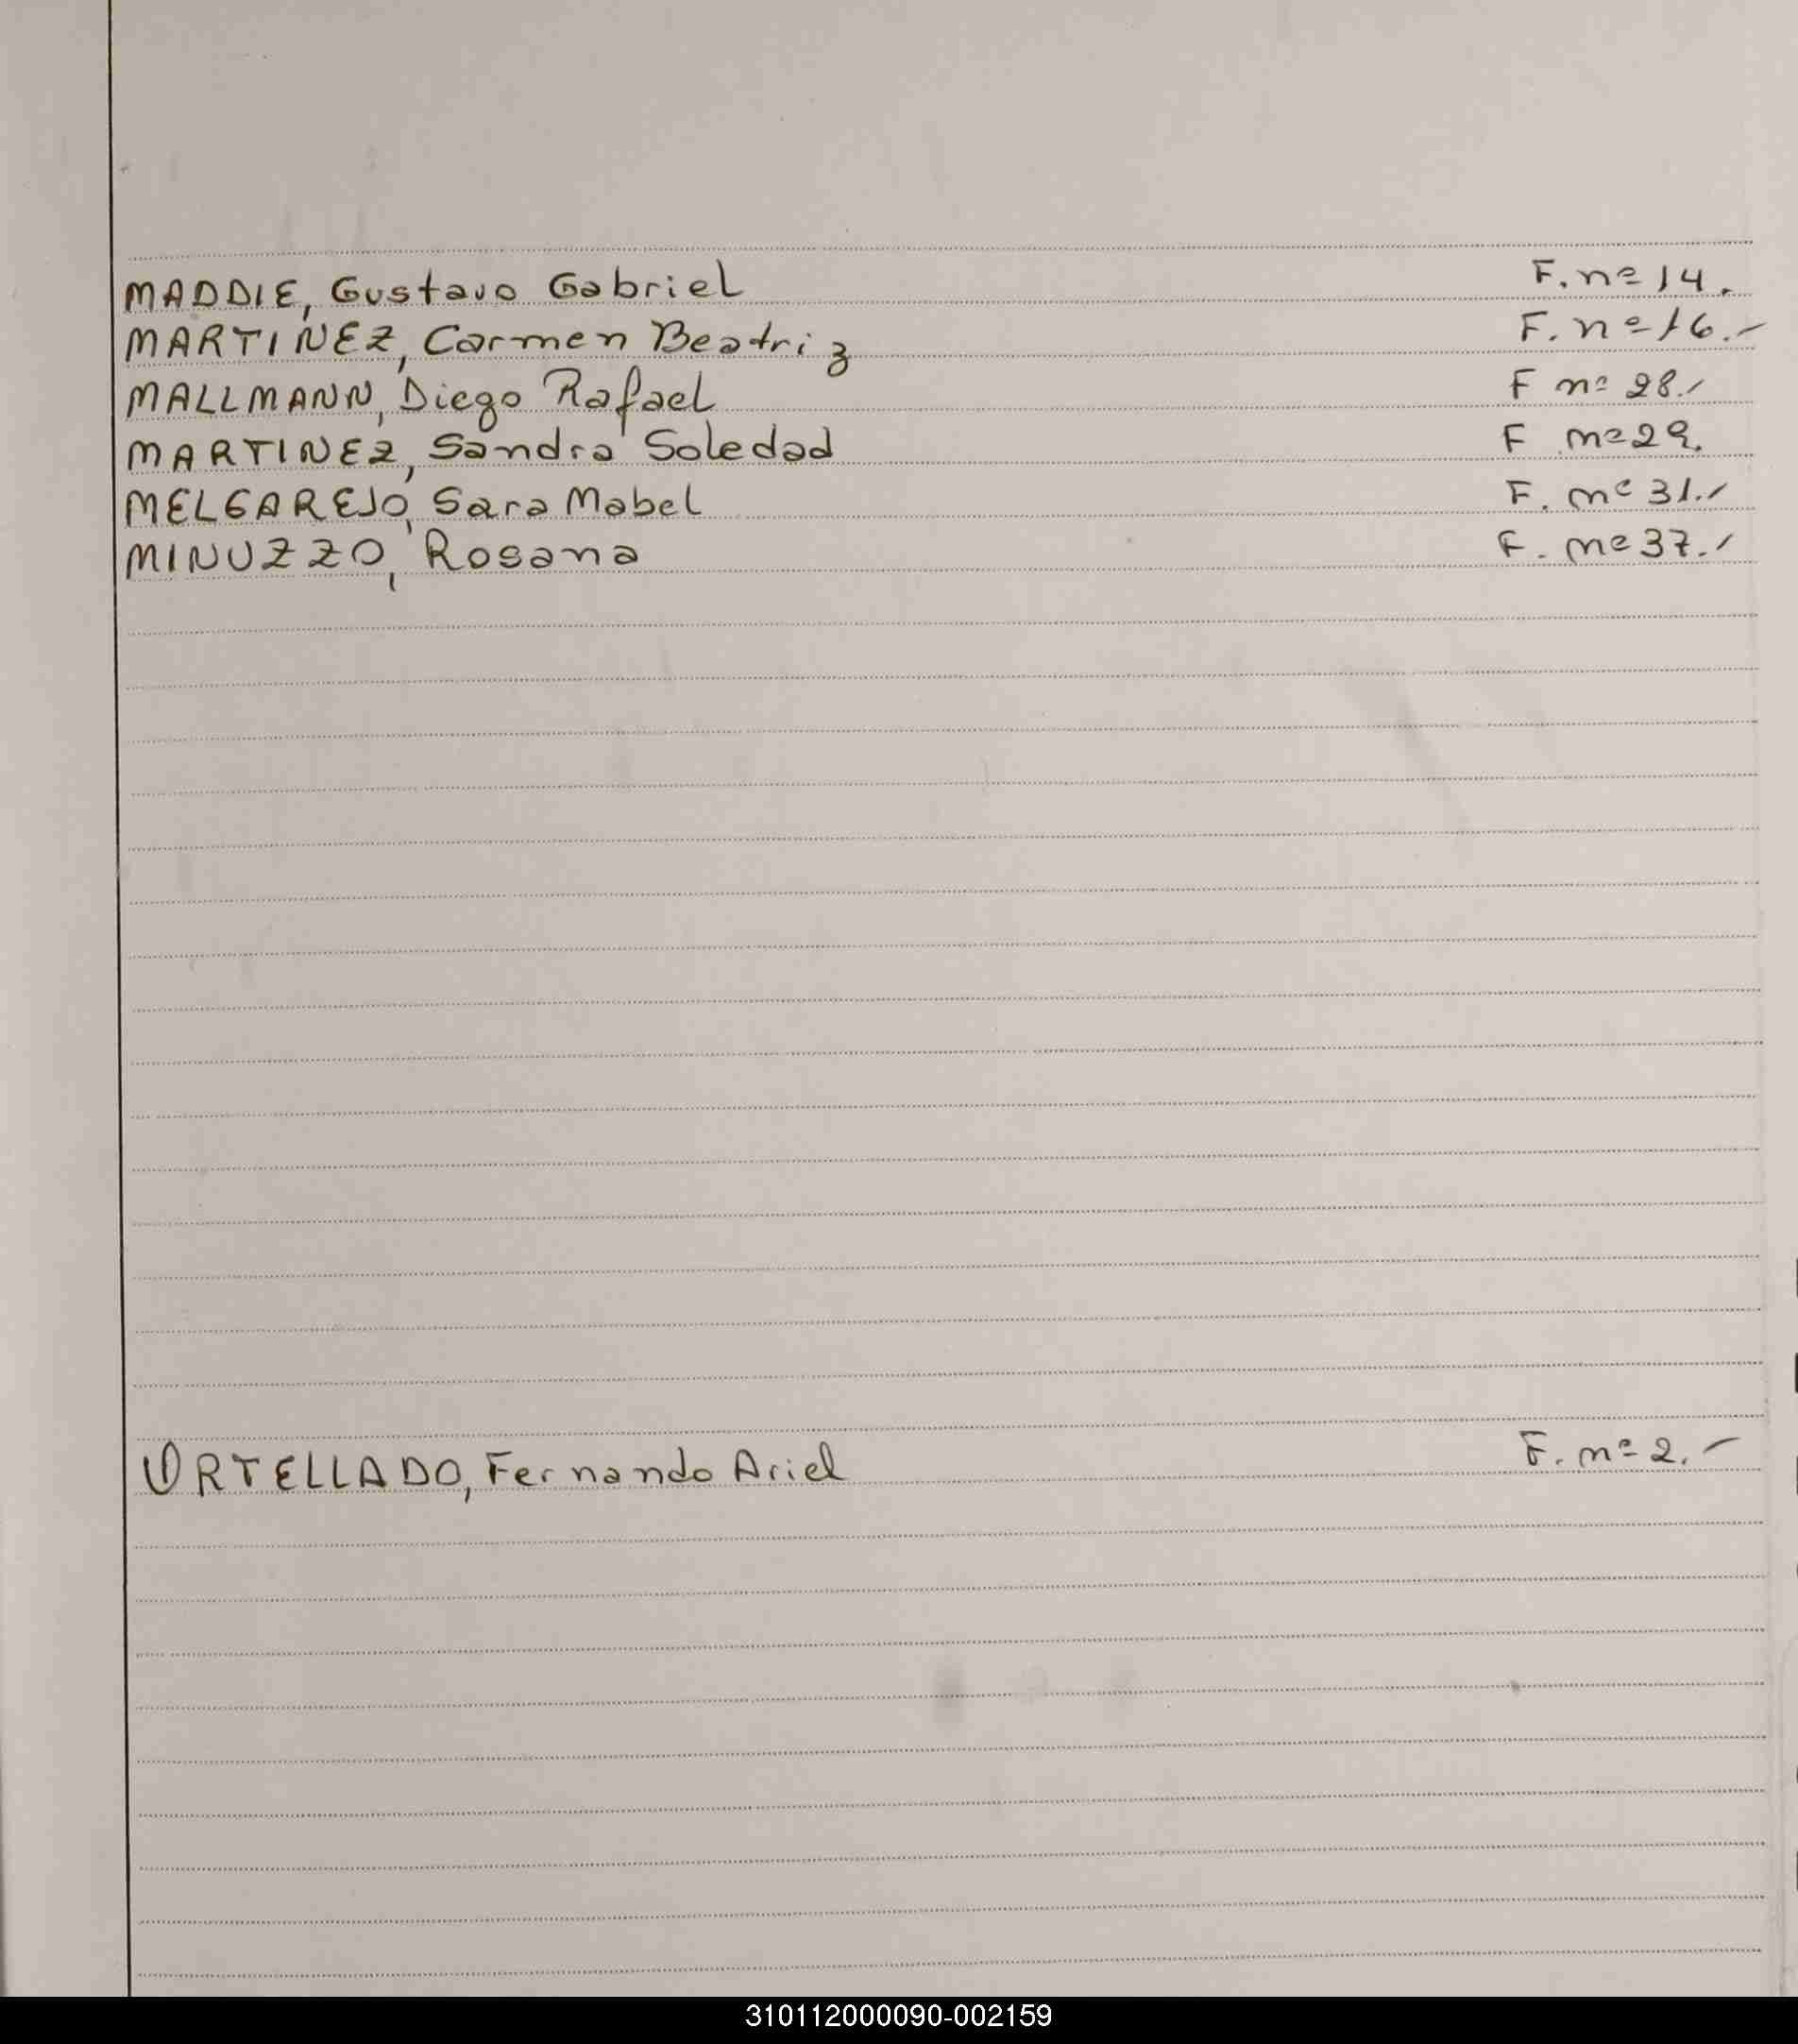 MADDIE, Gustavo Gabriel F. nº 14.
MARTINEZ, Carmen Beatriz F. nº 16.-
MALLMANN, Diego Rafael F nº 28.-
MARTINEZ, Sandra Soledad F nº 29.
MELGAREJO, Sara Mabel F. nº 31.-
MINUZZO, Rosana F. nº 37.-
ORTELLADO, Fernando Ariel F. nº 2.-
310112000090-002159